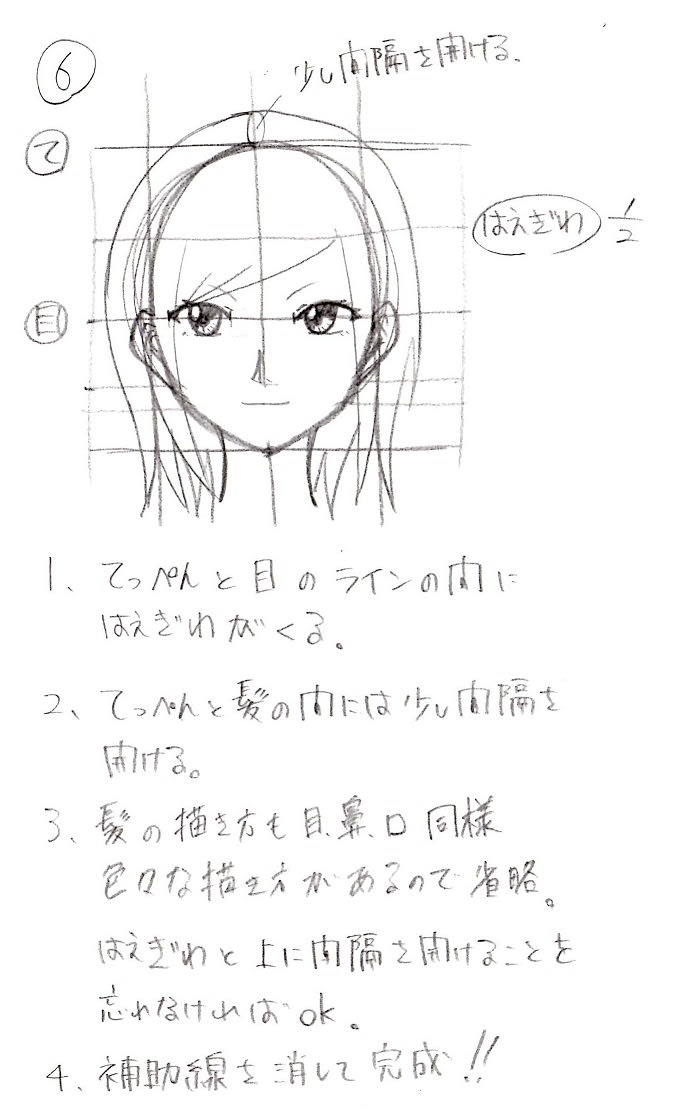 ⑥
少し間隔を開ける。
て
はえぎわ 1/2
目
1、てっぺんと目のラインの間に
はえぎわがくる。
2、てっぺんと髪の間には少し間隔を
開ける。
3、髪の描き方も目、鼻、口同様
色々な描き方があるので省略。
はえぎわと上に間隔を開けることを
忘れなければok。
4、補助線を消して完成!!